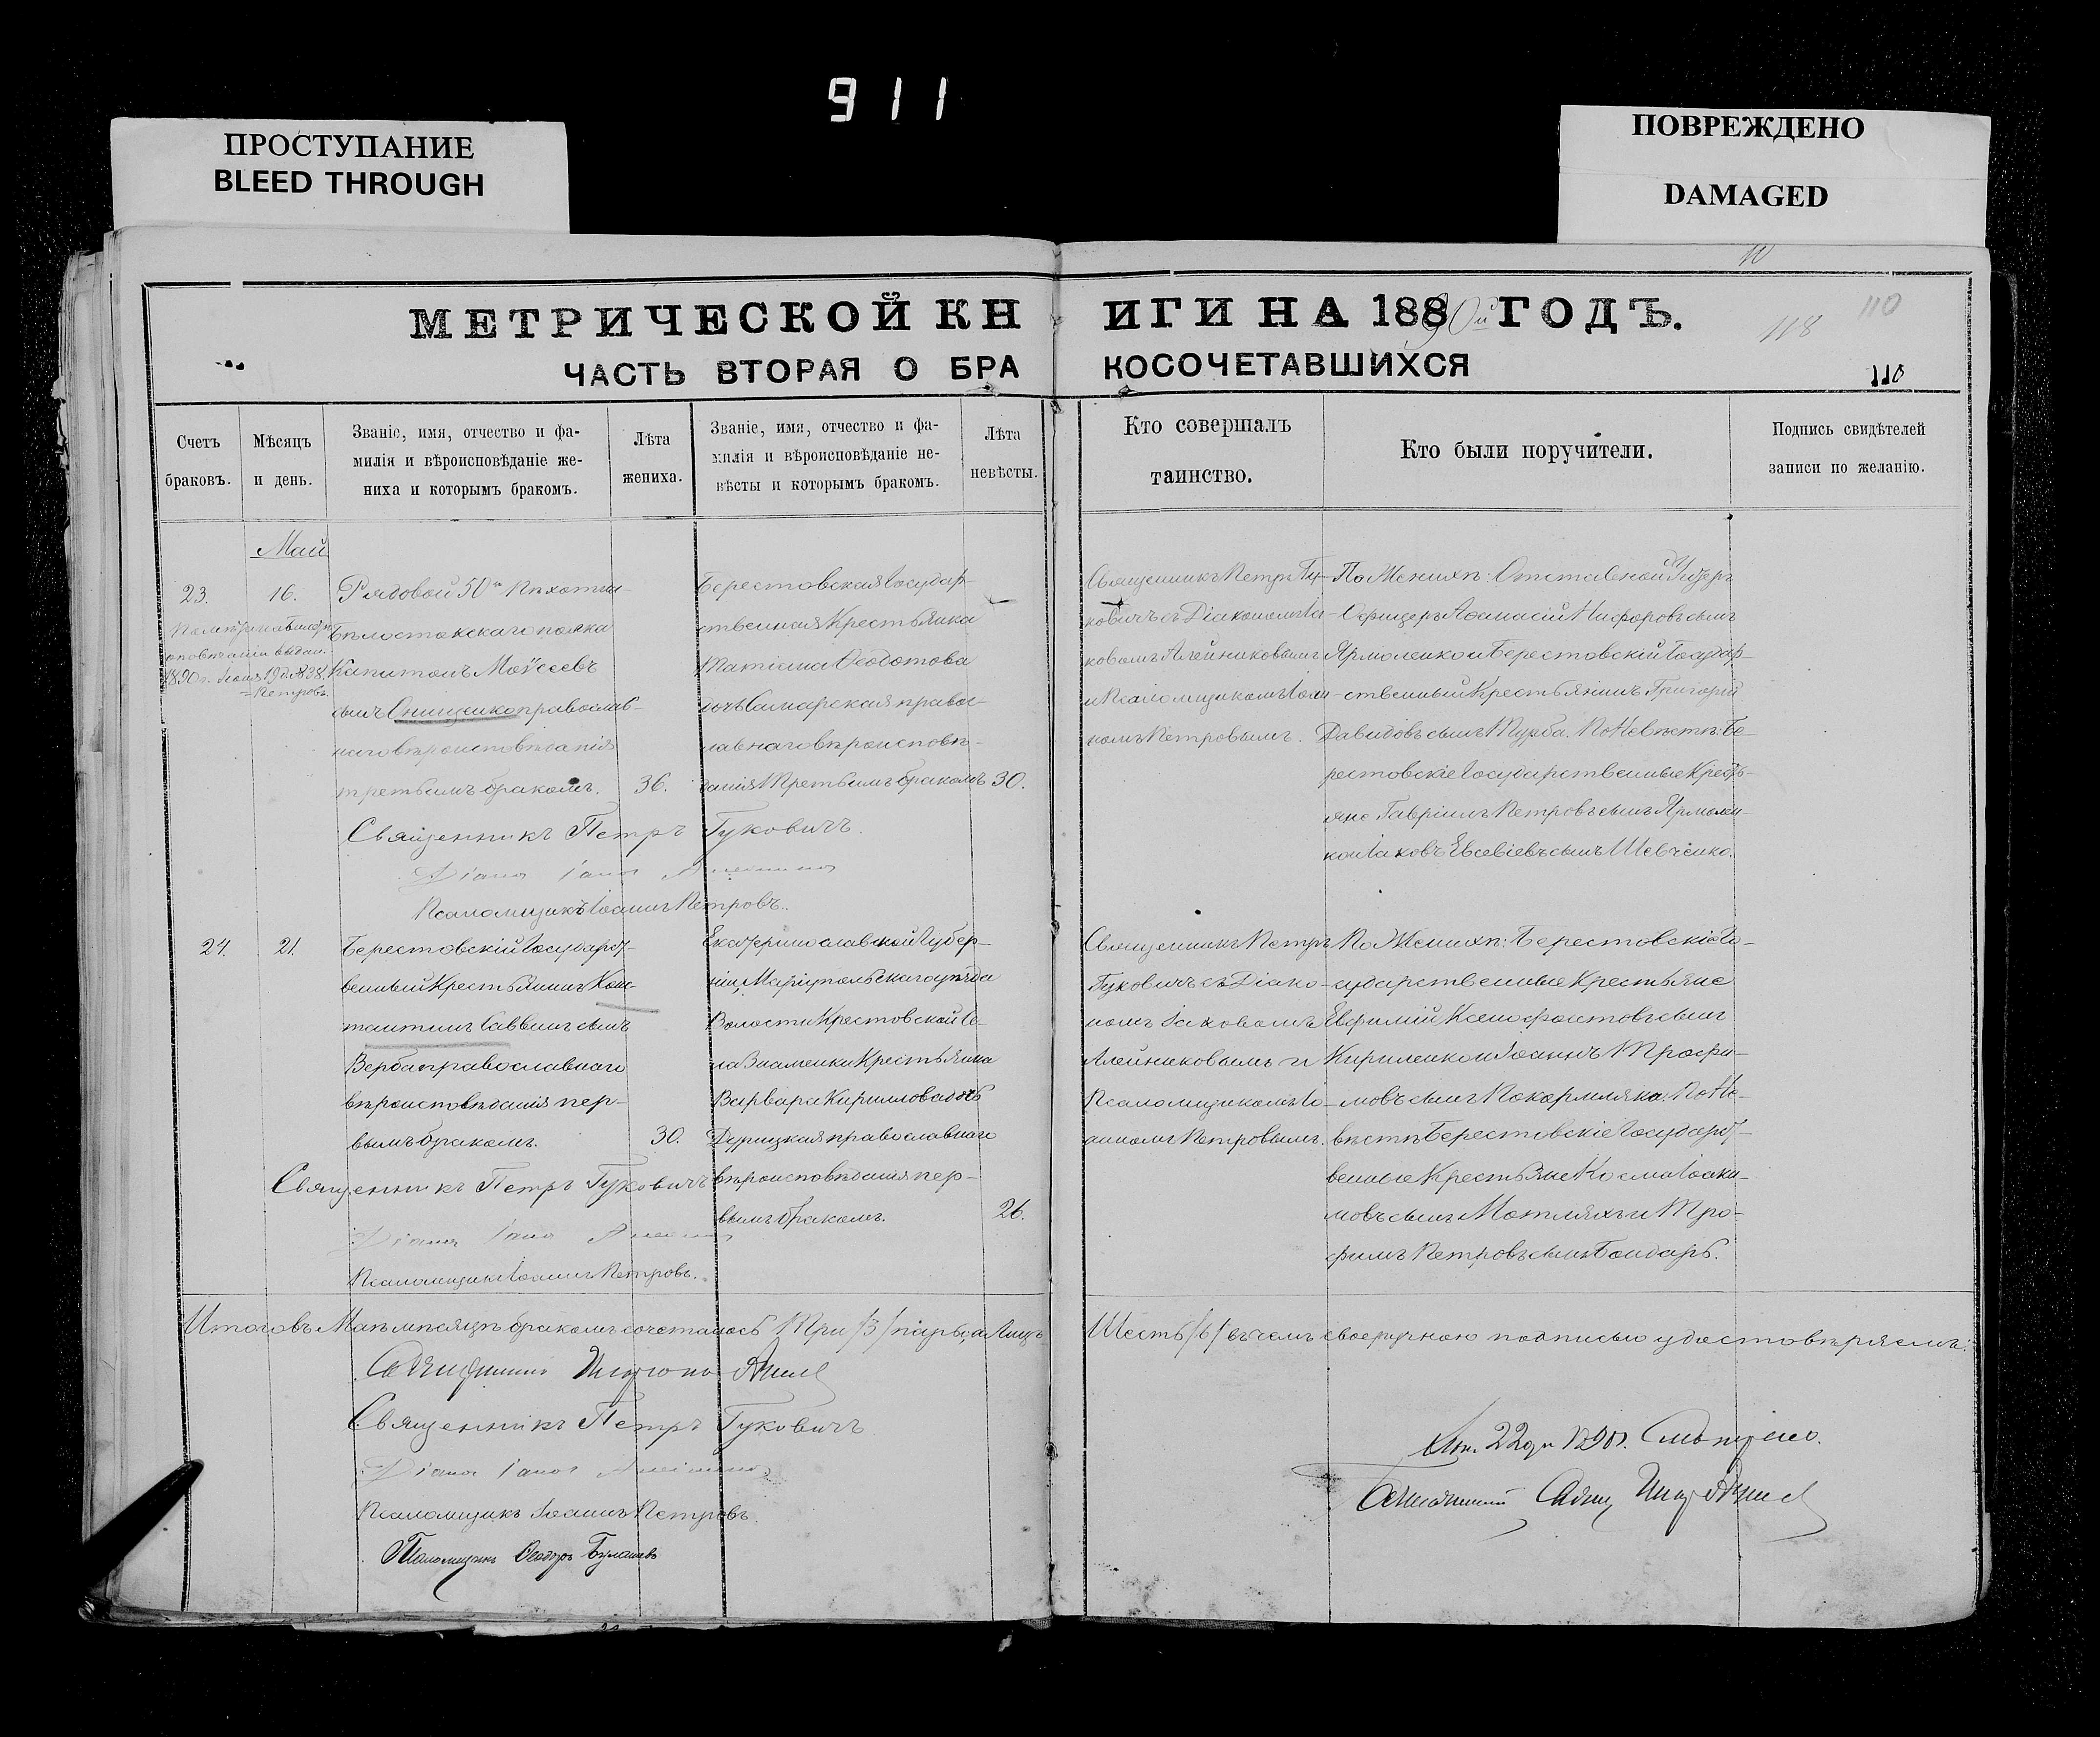 911
ПРОСТУПАНИЕ
BLEED THROUGH
ПОВРЕЖДЕНО
DAMAGED
МЕТРИЧЕСКОЙ КНИГИ НА 18890й ГОДЪ.
118
110
ЧАСТЬ ВТОРАЯ О БРАКОСОЧЕТАВШИХСЯ
110
Счетъ браковъ.
Мѣсяцъ и день.
Званіе, имя, отчество и фа-
милія и вѣроисповѣданіе же-
ниха и которымъ бракомъ.
Лѣта
жениха.
Званіе, имя, отчество и фа-
милія и вѣроисповѣданіе не-
вѣсты и которымъ бракомъ.
Лѣта
невѣсты.
Кто совершалъ
таинство.
Кто были поручители.
Подпись свидѣтелей
записи по желанію.
Май
23.
16.
Рядовой 50го Пѣхотна
Бѣлостокскаго полка
Капитонъ Моѵсеевъ
сынъ Онищенко православ-
наго вѣроисповѣданія
третьимъ бракомъ.
36.
1890 г. Іюня 19 д. №38.
Петровъ.
Берестовская Государ-
ственная Крестьянка
Татіана Ѳеодотова
дочь Самарская правос-
лавнаго вѣроисповѣ-
данія третьимъ бракомъ
30.
Священникъ Петръ Гу-
ковичъ съ Діакономъ Іа-
ковомъ Алейниковымъ
и Псаломщикомъ Іоан-
номъ Петровымъ.
По Женихѣ: Отставной Унтеръ
Офицеръ Аѳанасій Никифоровъ сынъ
Ярмоленко и Берестовскій Государ-
ственный Крестьянинъ Григорій
Давидовъ сынъ Турба. По Невѣстѣ: Бе-
рестовскіе Государственные Кресть-
яне Гавріилъ Петровъ сынъ Ярмолен-
ко и Іаковъ Евсевіевъ сынъ Шевченко.
Священникъ Петръ Гуковичъ
Псаломщикъ Іоаннъ Петровъ.
24.
21.
Берестовскій Государст-
венный Крестьянинъ Кон-
стантинъ Саввинъ сынъ
Верба православнаго
вѣроисповѣданія пер-
вымъ бракомъ.
30.
Екатеринославской Губер-
ніи, Маріупольскаго уѣзда
Волости Крестовской Се-
ла Знаменки Крестьянка
Варвара Кириллова дочь
Дурицкая православнаго
вѣроисповѣданія пер-
вымъ бракомъ.
26.
Священникъ Петръ
Гуковичъ съ Діако-
номъ Іаковомъ
Алейниковымъ и
Псаломщикомъ Іо-
анномъ Петровымъ.
По Женихѣ: Берестовскіе Го-
сударственные Крестьяне
Евфимій Ксенофонтовъ сынъ
Кириленко и Іоаннъ Трофи-
мовъ сынъ Покормляка. По Не-
вѣстѣ Берестовскіе Государст-
венные Крестьяне Косма Іоаки-
мовъ сынъ Мотляхъ и Тро-
фимъ Петровъ сынъ Бондарь.
Священникъ Петръ Гуковичъ
Псаломщикъ Іоаннъ Петровъ.
Итого въ Маѣ мѣсяцѣ бракомъ сочеталось Три /3/ пары, а Лицъ Шесть /6/ въ чемъ своеручною подписью удостовѣряемъ:
Священникъ
Священникъ Петръ Гуковичъ
Псаломщикъ Іоаннъ Петровъ.
Псаломщикъ Ѳеодоръ
22 дня 1890 г.